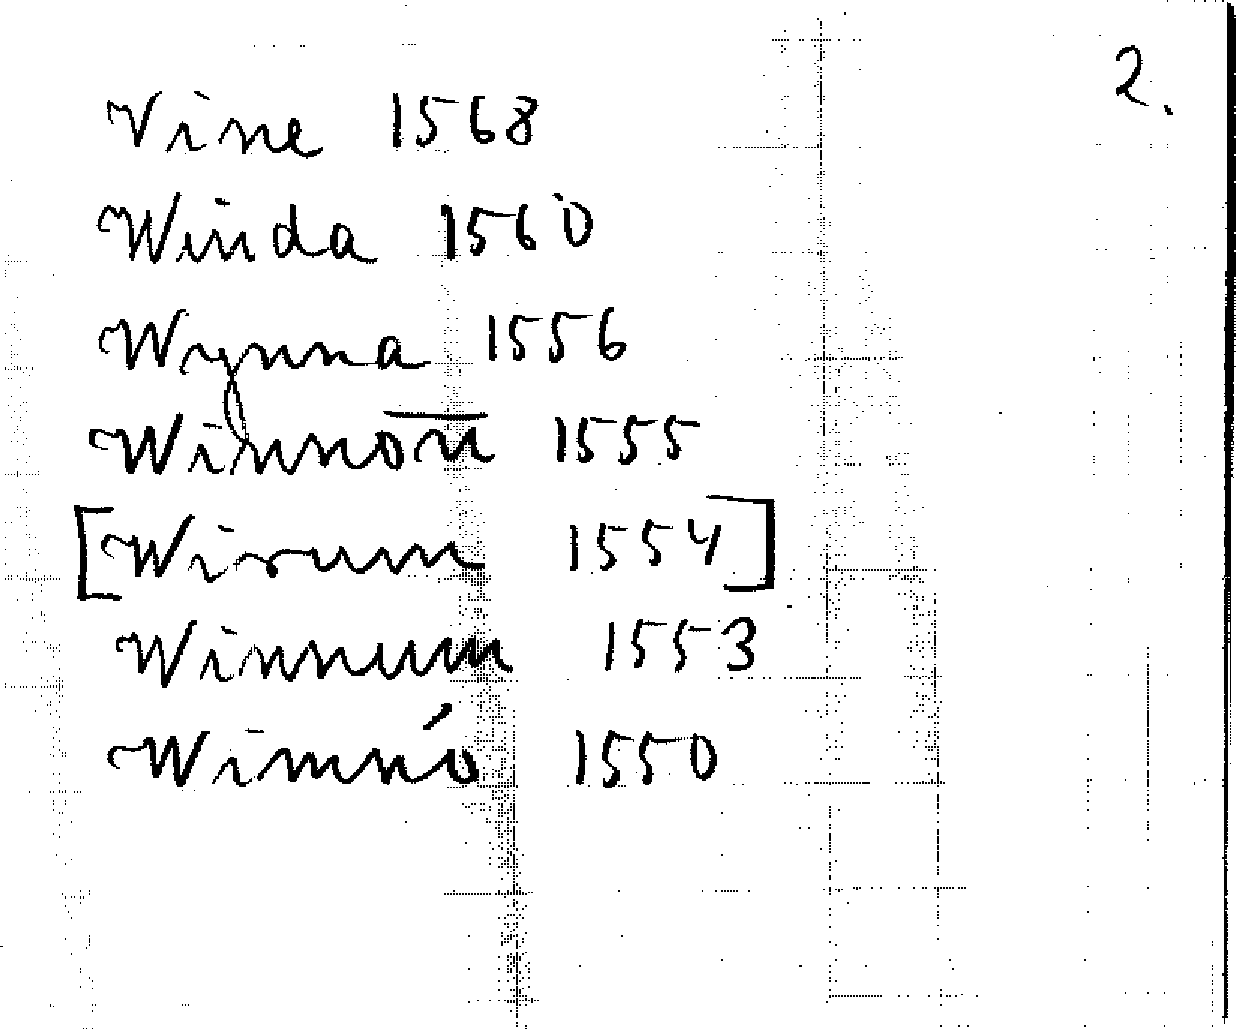 2.
Vine 1568
Winda 1560
Wynna 1556
Winnon̄ 1555
[Wirum 1554]
Winnum 1553
Wimnó 1550